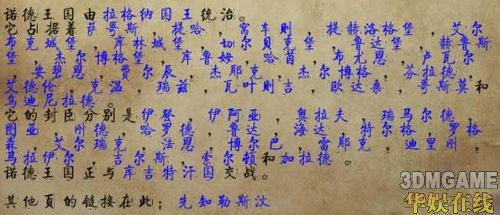 诺德王国由拉格纳国王统治。
它占据着萨哥斯 提哈，窝车则 提赫洛格堡，艾尔
布克城堡，库林城堡，切尔贝克堡，鲁达堡，赫鲁斯
堡，杰尔博格堡，库鲁姆，哈丹，布尤恩，卢瓦尔
，安努恩，贾尔辰，杰耶克，杰尔博格，芬拉德，
艾德伦，克温，瑞兹，瓦叶则吉，欧达赛，哥斯莫和
乌迪尼拉德。
它的封臣分别是伊登，伊阿亚，奥拉夫，瑞马尔
，图亚，刚德，哈罗德，鲁达，海达，特尔格，罗格
菲，艾尔，瑞克，法恩，博尔巴，雷耶克，迪里刚，
马拉伊尔，吉尔斯，索尔顿和加拉德。
诺德王国正与库吉特汗国交战。
其他页的链接在此：先知勒斯汶
3DMGAME
华娱在线